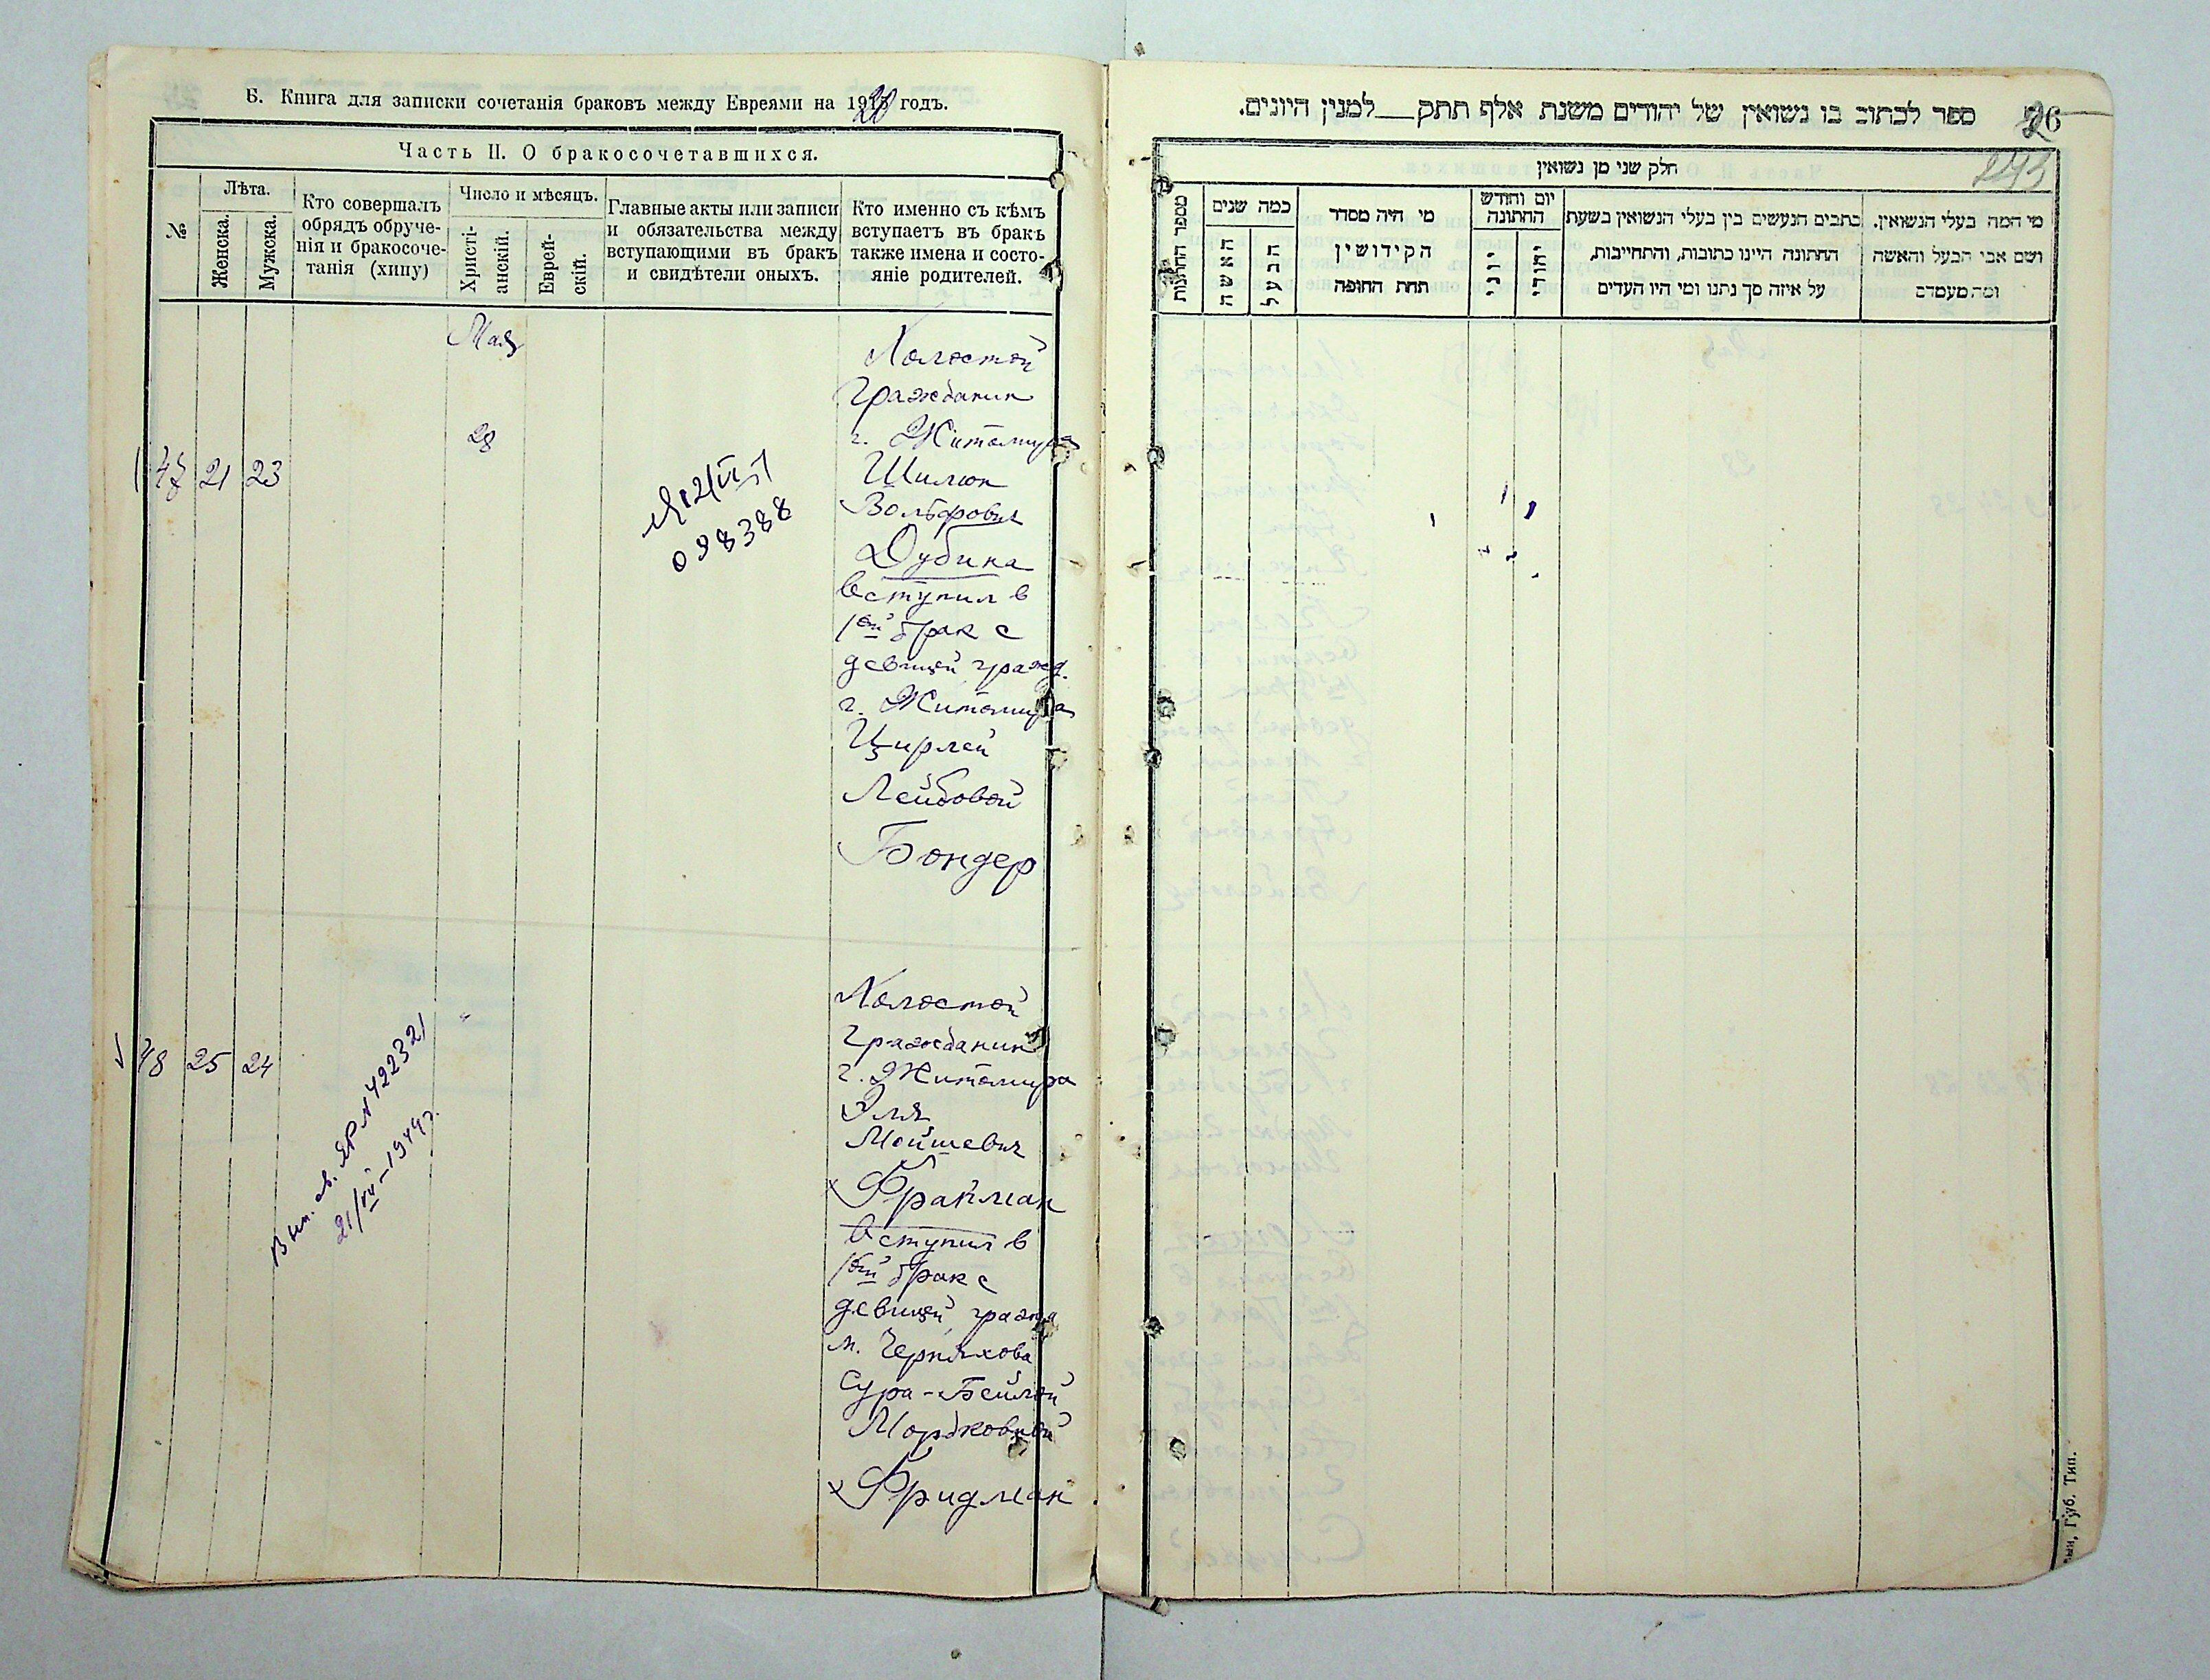 Б. Книга для записки сочетанія браковъ между Евреями на 1920 годъ.
Часть II. О бракосочетавшихся.
№
Лѣта.
Женска.
Мужска.
Кто совершалъ
обрядъ обруче-
нія и бракосоче-
танія (хипу)
Число и мѣсяцъ.
Христі-
анскій.
Еврей-
скій.
Главные акты или записи
и обязательства между
вступающими въ бракъ
и свидѣтели оныхъ.
Кто именно съ кѣмъ
вступаетъ въ бракъ
также имена и состо-
яніе родителей.
Мая
28
47 21 23
098388
Холостой
Гражданин
г. Житомира
Шилюн
Вольфович
Дубина
вступил в
1ый брак с
девицей гражд.
г. Житомира
Цирлей
Лейбовой
Бондер
48 25 24
"
Вып. св. ЯР № 422321
21/VII-1944г.
Холостой
Гражданин
г. Житомира
Эля
Мойшевич
Фрайман
вступил в
1ый брак с
девицей гражд
м. Черняхова
Сура-Бейлой
Мордковной
Фридман
ספר לכתוב בו נשואין של יהודים משנת אלף תתק___למנין היונים.
26
חלק שני מן נשואין
מספר החתונות
כמה שנים
האשה
הבעל
מי היה מסדר
הקידושין
תחת החופה
יום וחודש
החתונה
יוני
יהודי
כתבים הנעשים בין בעלי הנשואין בשעת
החתונה היינו כתובות, והתחייבות,
על איזה סך נתנו ומי היו העדים
מי המה בעלי הנשואין.
ושם אבי הבעל והאשה
ומה מעמדם
Губ. Тип.